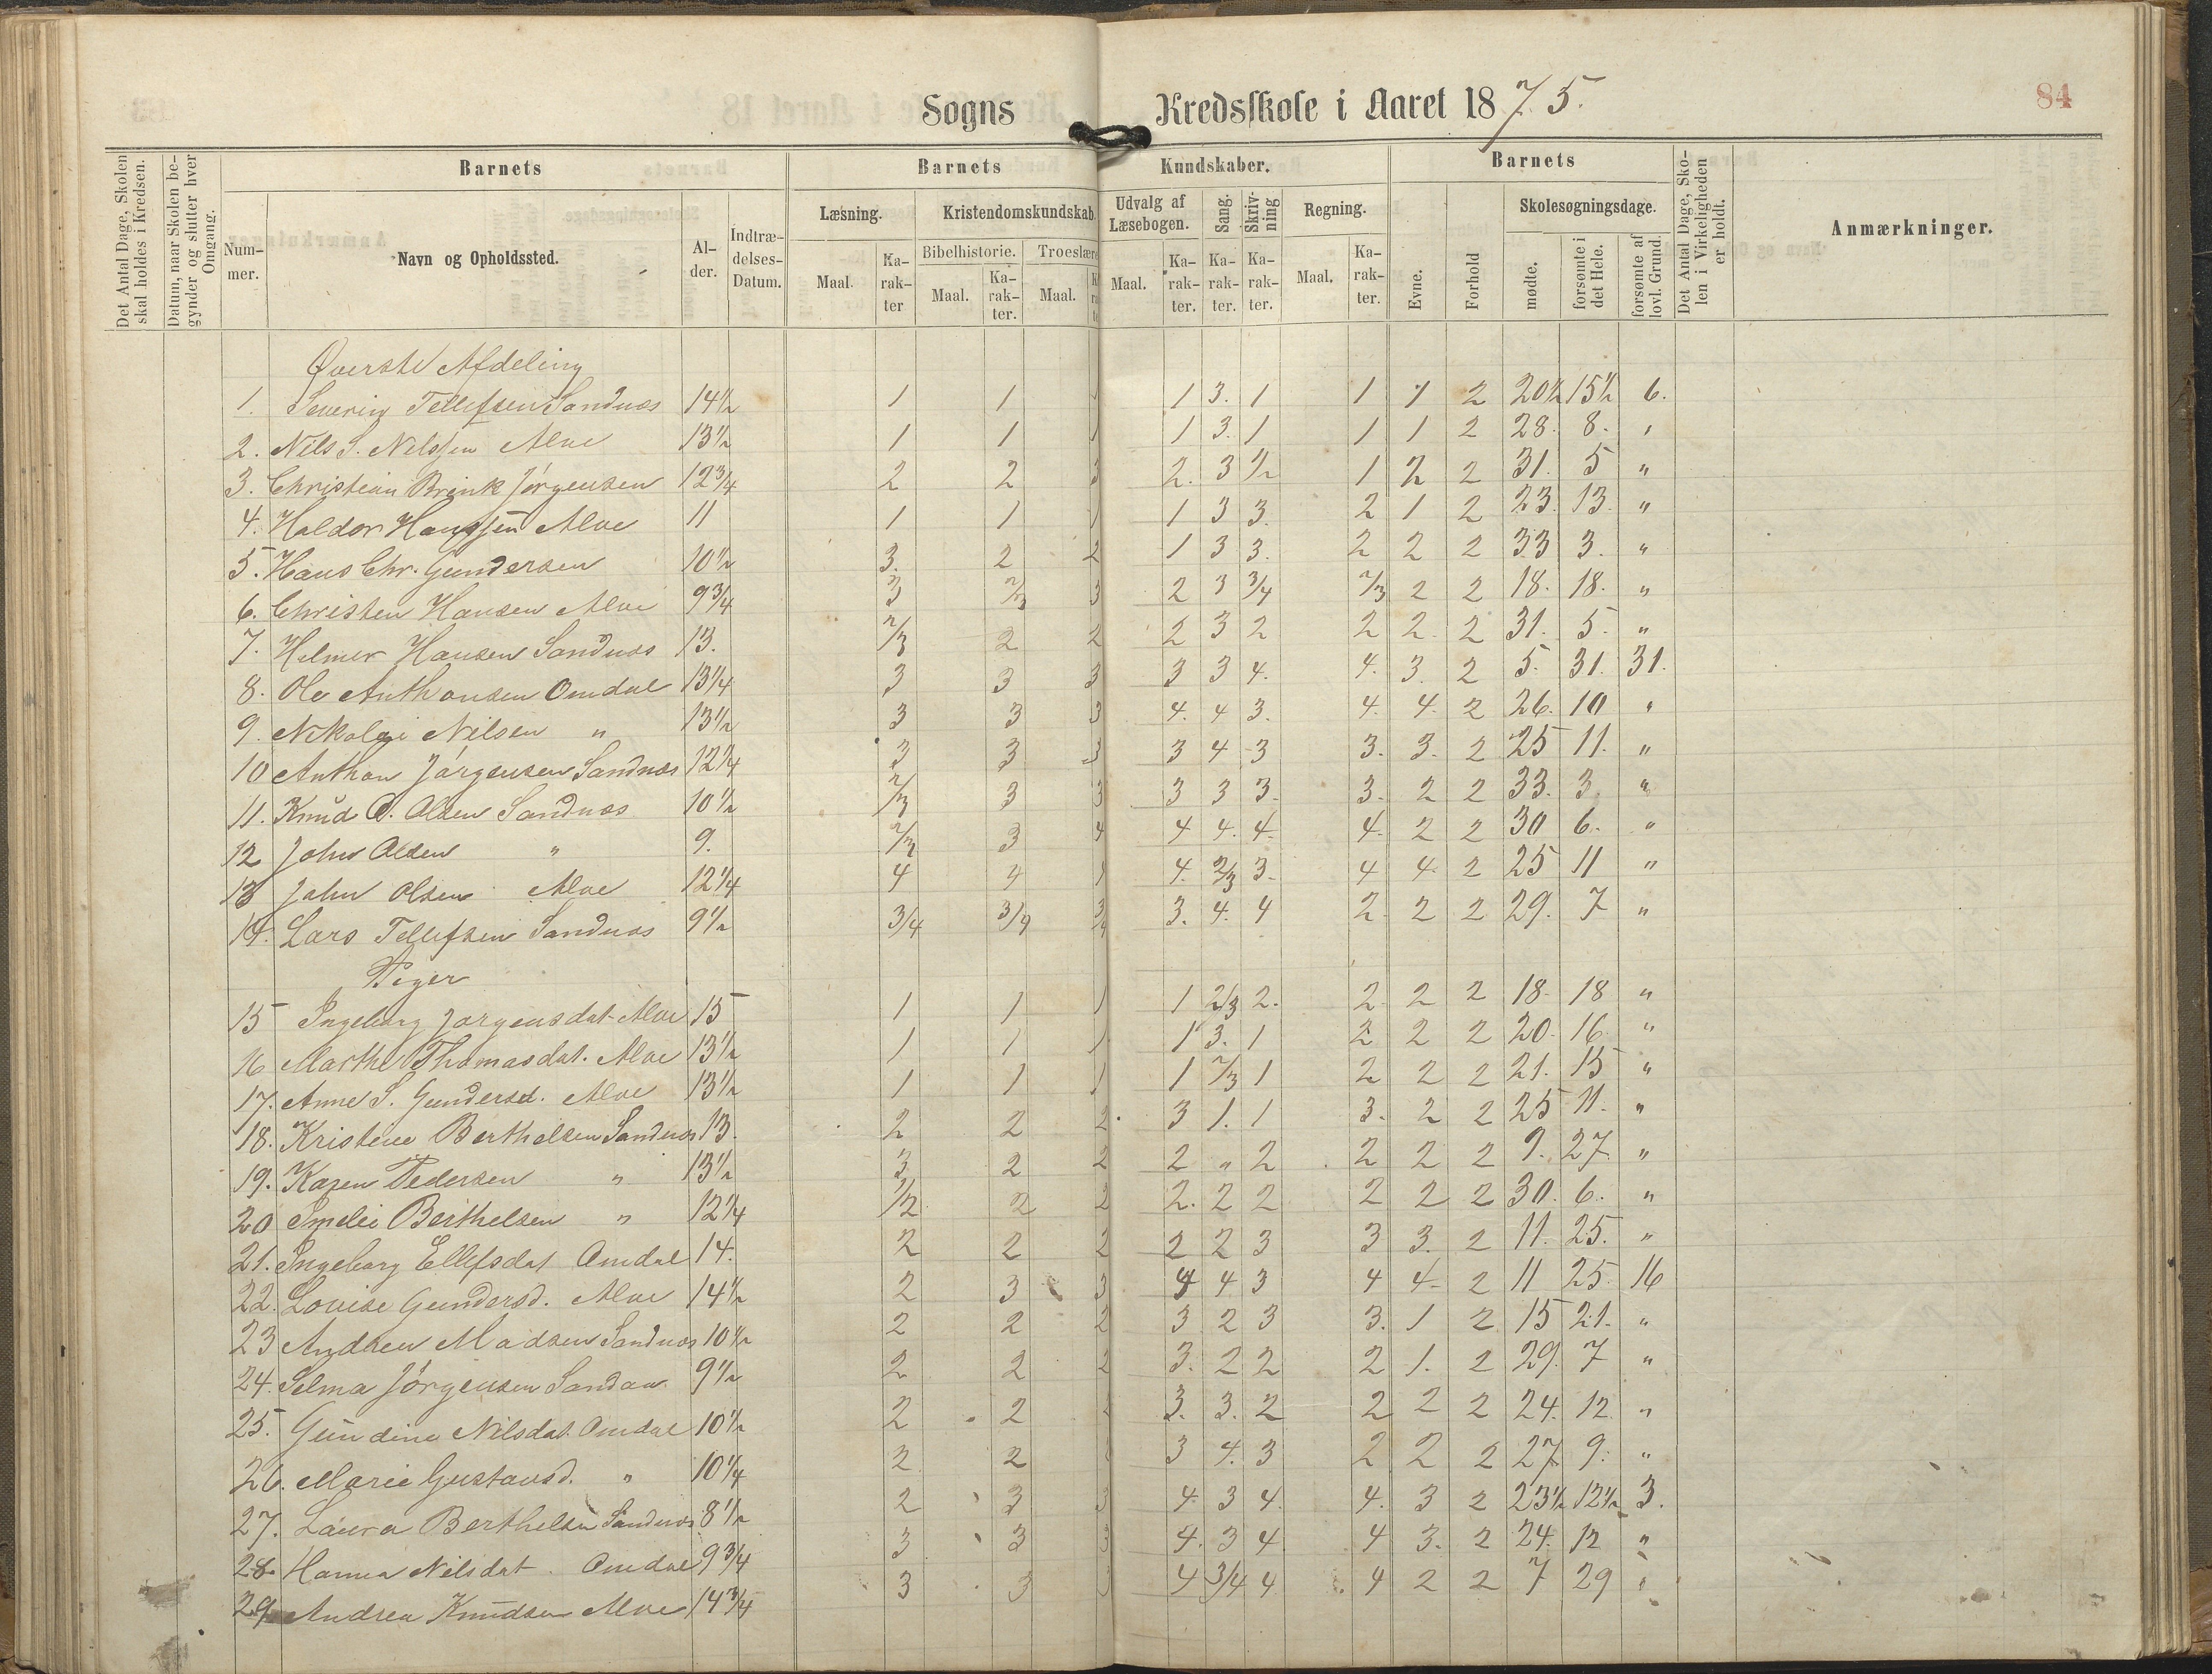 Sogns Kredsskole i Aaret 1875. 84
Det Antal Dage, Skolen skal holdes i Kredsen.
Datum, naar Skolen begynder og slutter hver Omgang.
Barnets Barnets Kundskaber. Barnets
Nummer. Navn og Opholdssted. Alder. Indtrædelses-Datum.
Læsning. Kristendomskundskab. Udvalg af Læsebogen. Sang. Skrivning Regning. Skolesøgningsdage.
Bibelhistorie. Troeslære
Maal. Karakter Maal. Karakter. Maal. Maal. Karakter. Karakter. Karakter. Maal. Karakter. Evne. Forhold mødte. forsømte i det Hele. forsømte af lovl. Grund.
Det Antal Dage, Skolen i Virkeligheden er holdt.
Anmærkninger.
Øverste Afdeling
1. Severin Tellefsen Sandnæs 14½ 1 1 1 1 3. 1 1 1 2 20½ 15½ 6.
2. Nils S. Nilssen Alve 13½ 1 1 1 1 3. 1 1 1 2 28. 8. "
3. Christian Brink Jörgensen 12¾ 2 2 3 2. 3 ½ 1 2 2 31. 5 "
4. Haldor Hanssen Alve 11 1 1 1 1 3 3. 2 1 2 23. 13. "
5. Hans Chr. Gundersen 10½ 3. 2 2 1 3 3. 2 2 2 33 3. "
6. Christen Hansen Alve 9¾ 3 2/3 3 2 3 3/4 2/3 2 2 18. 18. "
7. Helmer Hansen Sandnæs 13. 2/3 2 2 2 3 2 2 2. 2 31. 5. "
8. Ole Anthonsen Omdal 13¼ 3 3 3 3 3 4. 4. 3. 2 5. 31. 31.
9. Nikolai Nilsen " 13½ 3 3 3 4. 4 3. 4. 4. 2 26. 10 "
10 Anthon Jörgensen Sandnæs 12¼ 3 3 3 3 4 3 3. 3. 2 25 11. "
11. Knud O. Olsen Sandnæs 10½ 2/3 3 3 3 3 3. 3. 2 2 33. 3. "
12 John Olsen " 9. 2/3 3 4 4 4. 4. 4. 2 2 30 6. "
13 John Olsen Alve 12¼ 4 4 4. 2/3 3. 4 4. 2 25 11 "
14. Lars Tellefsen Sandnæs 9½ 3/4 3/4 3/4 3. 4. 4 2 2 2 29. 7 "
Piger
15 Ingeborg Jorgensdat. Alve 15 1 1 1 1 2/3 2. 2 2 2 18. 18 "
16 Marthe Thomasdat. Alve 13½ 1 1 1 1 3. 1 2 2 2 20. 16. "
17. Anne S. Gundersd. Alve 13½ 1 1 1 1 2/3 1 2 2 2 21. 15 "
18. Kristene Berthelsen Sandnæs 13. 2 2 2. 3 1. 1 3. 2 2 25 11. "
19. Karen Pedersen " 13½ 3. 2 2 2 " 2 2 2 2 9. 27. "
20 Emelie Berthelsen " 12¼ 1/2 2 2 2. 2 2 2 2 2 30. 6. "
21. Ingeborg Ellefsdat Omdal 14. 2 2 2 2 2 3 3 3. 2 11. 25. "
22. Lovise Gundersd. Alve 14½ 2 3 3 4 4 3 4 4. 2 11 25. 16
23 Andrea Madsen Sandnæs 10½ 2 2 2 3 2 3 3. 1 2 15 21. "
24. Selma Jörgensen Sandnæs 9½ 2 2 2 3. 2 2 2 1. 2 29. 7 "
25. Gundine Nilsdat. Omdal 10½ 2 2 3. 3. 2 2 2 2 24. 12. "
26. Marie Gustavsd. " 10¼ 2 2 3 4. 3 2 2 2 27 9. "
27. Laura Berthelsen Sandnæs 8½ 2 3 3 4. 3 4. 4. 3 2 23½ 12½ 3.
28. Hanna Nilsdat. Omdal 9¾ 3 3 3 4. 3 4 4 3. 2 24. 12 "
29 Andrea Knudsen Alve 14¾ 3 3 3 4 3/4 4 4 2 2 7 29 "